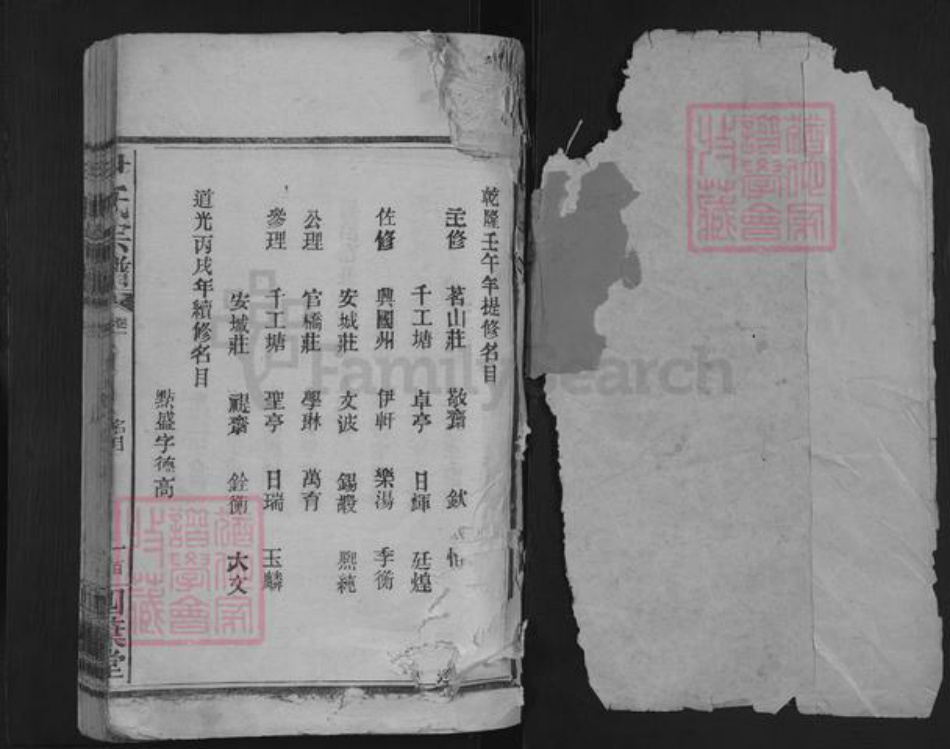 乾隆壬午年提修名目
主修 茗山莊 敬齋 欽 怡
千工塘 卓亭 日輝 廷煌
佐修 興國州 伊軒 樂湯 季衡
安城莊 文波 錫嘏 熙純
公理 官橋莊 學琳 萬育
參理 千工塘 聖亭 日瑞 玉麟
安城莊 禔齋 銓衡 大文
道光丙戌年續修名目
點盛字德高
氏宗譜
名目
FamilySearch
譜學會
收藏
譜學會
收藏